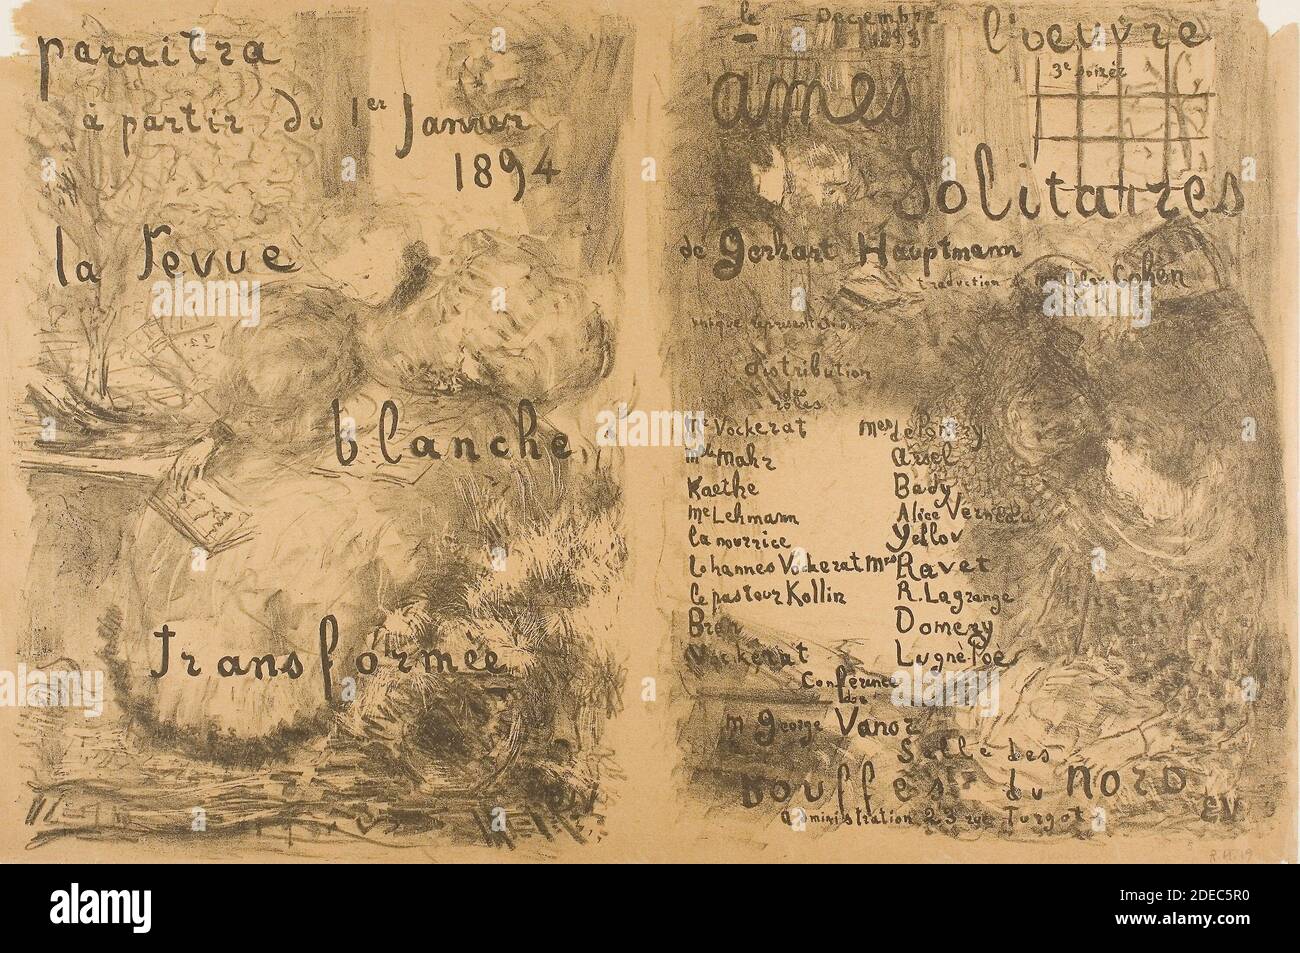 paraitra
à partir du 1er Janvier
1894
la revue
blanche
transformée
le Decembre
1893
l'oeuvre
3e soirée
ames
Solitaires
de Gerhart Hauptmann
traduction de Mr Alex. Cohen
unique representation
distribution
des
roles
Me Vockerat Mes de Pontry
Mlle Mahr Arsel
Kaethe Bady
Me Lehmann Alice Verneau
la nourrice Yellov
Johannes Vockerat Mrs Ravet
le pasteur Kollin R. Lagrange
Bran Domery
Vockerat Lugné-Poe
Conférence
de
M George Vanor
Salle des
Bouffes du Nord
administration 23 rue Turgot
EV
R.M. 19
alamy
Image ID: 2DEC5R0
www.alamy.com